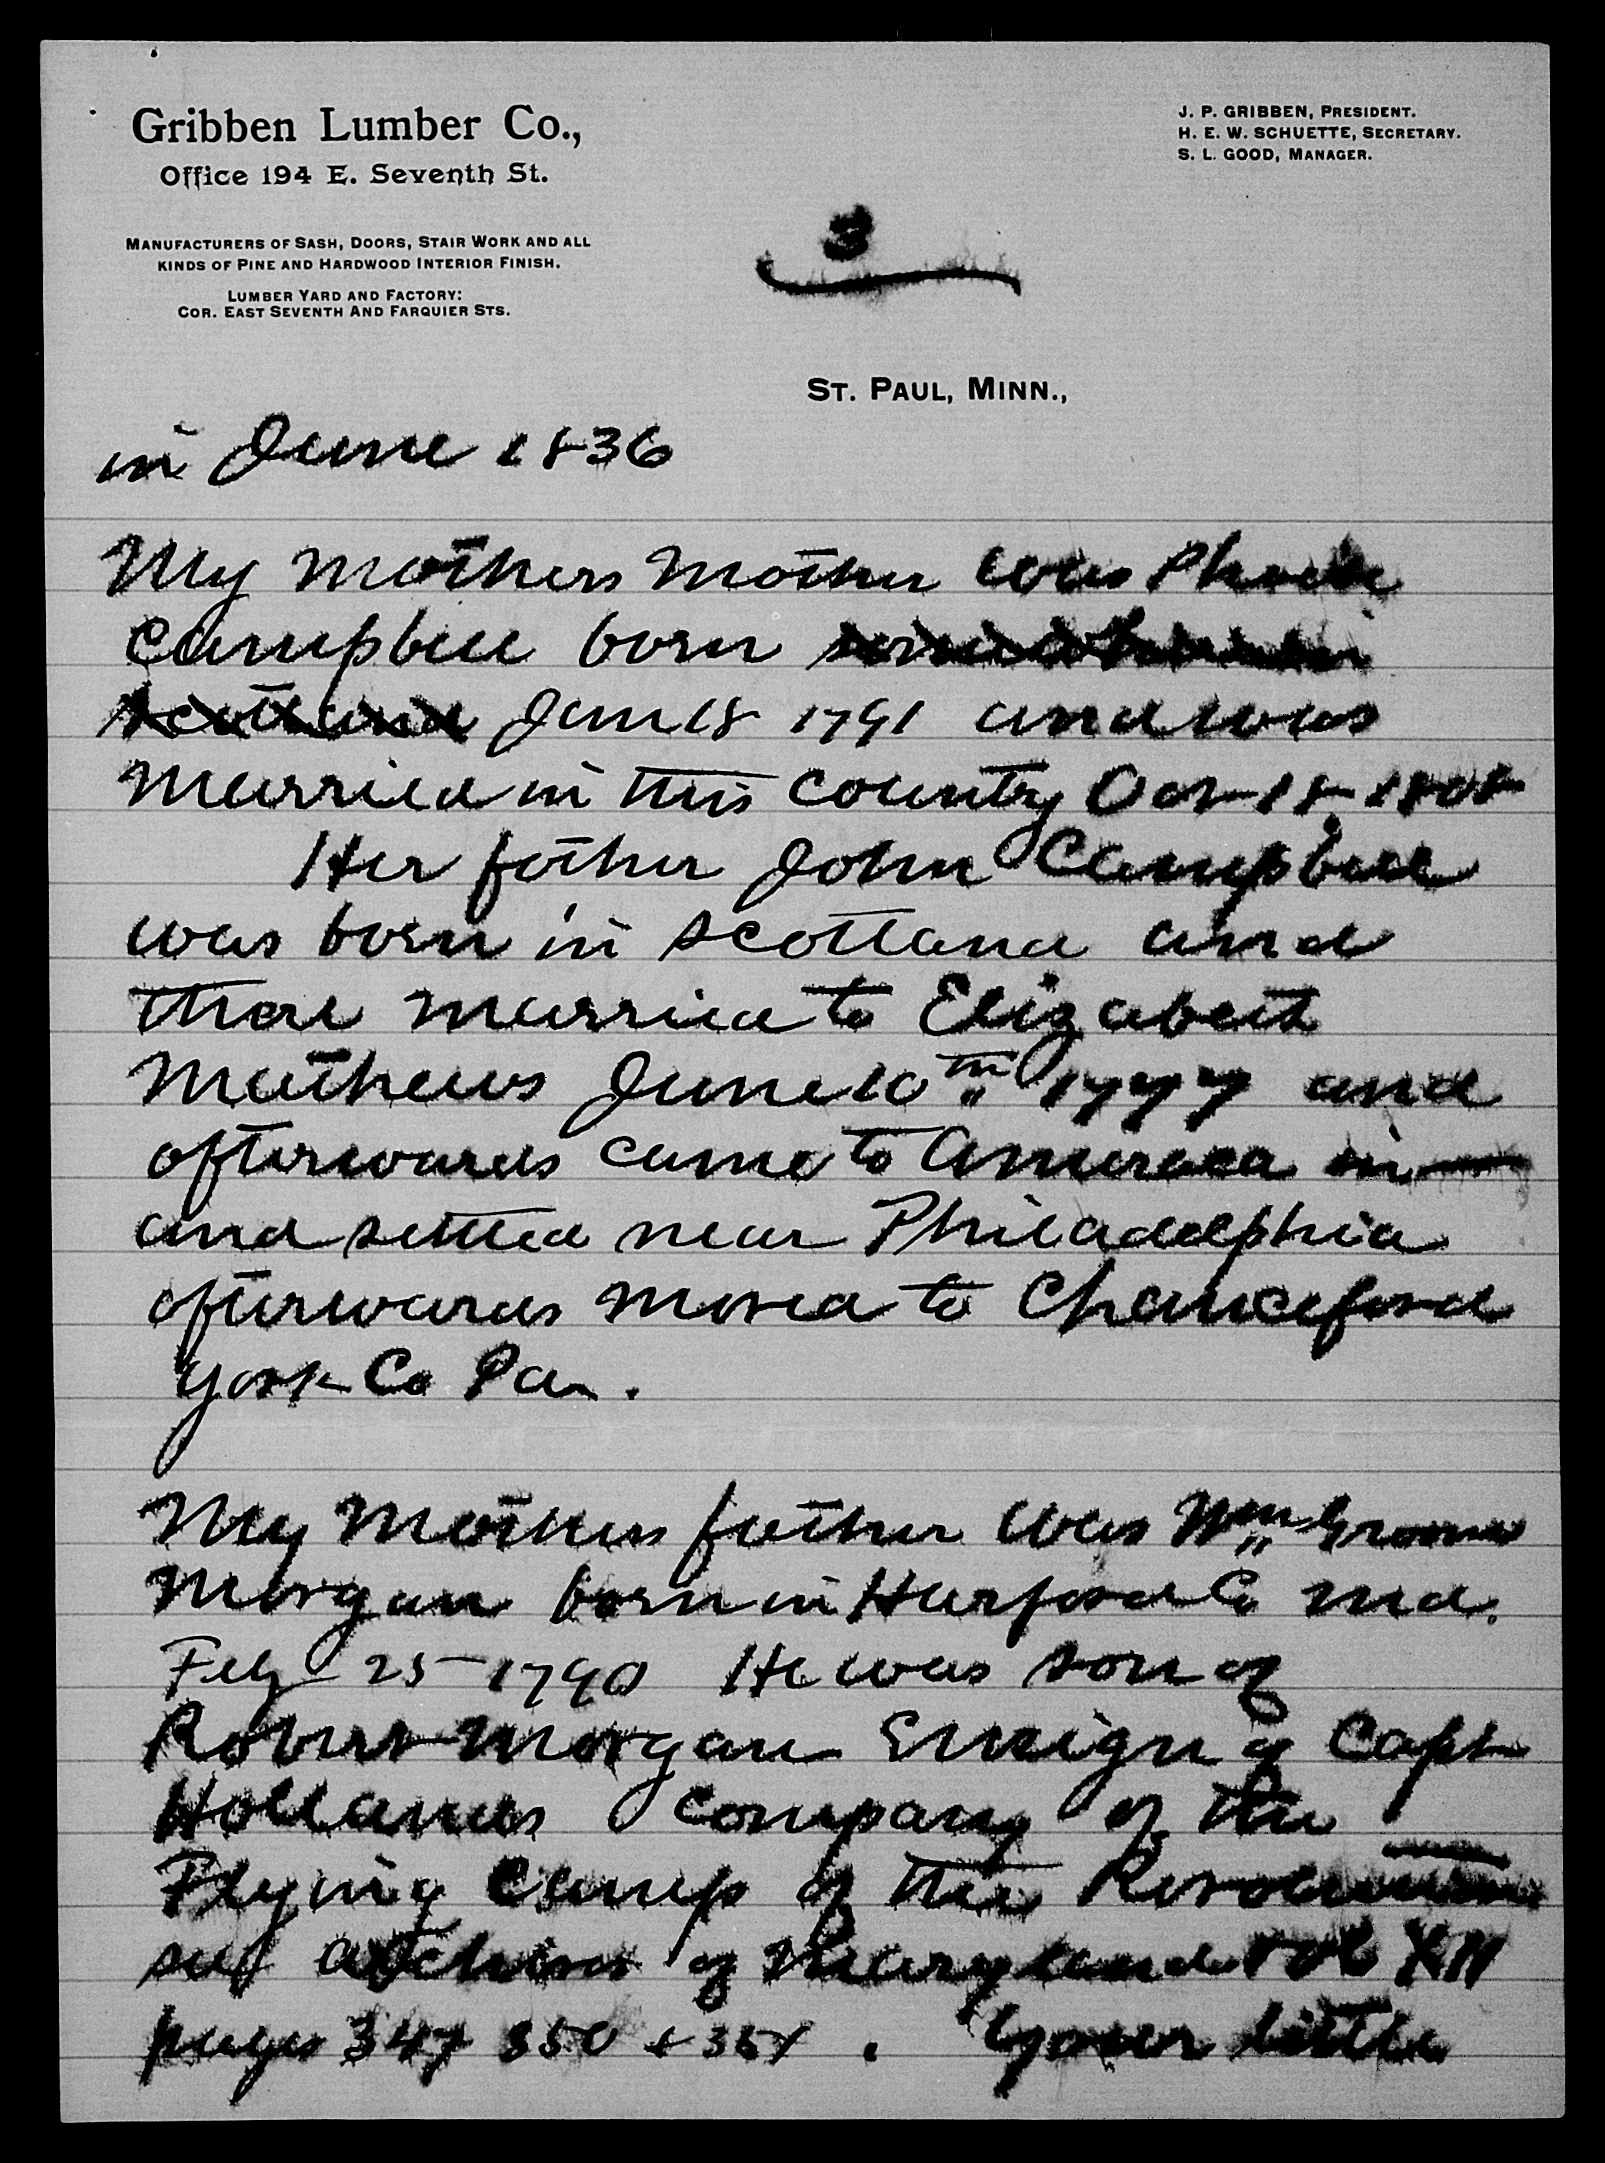 Gribben Lumber Co.,
Office 194 E. Seventh St.
MANUFACTURERS OF SASH, DOORS, STAIR WORK AND ALL
KINDS OF PINE AND HARDWOOD INTERIOR FINISH.
LUMBER YARD AND FACTORY:
COR. EAST SEVENTH AND FARQUIER STS.
J. P. GRIBBEN, PRESIDENT.
H. E. W. SCHUETTE, SECRETARY.
S. L. GOOD, MANAGER.
3
ST. PAUL, MINN.,
in June 1836
My mothers mother was Phoebe
Campbell born
Scotland Jan 18 1791 and was
married in this country 18 1808
Her father John Campbell
was born in Scotland and
there married to Elizabeth
Mathews June 10th 1777 and
afterwards came to America in
and settled near Philadelphia
afterwards moved to Chanceford
York Co Pa.
My Mothers father was Wm Groome
Morgan born in Harford Co Md.
Feby 25 1790 He was son of
Robert Morgan Ensign of Capt
Hollands Company of the
Flying Camp of the Revolution
see archives of Maryland vol
pages 347 350 + . Your little